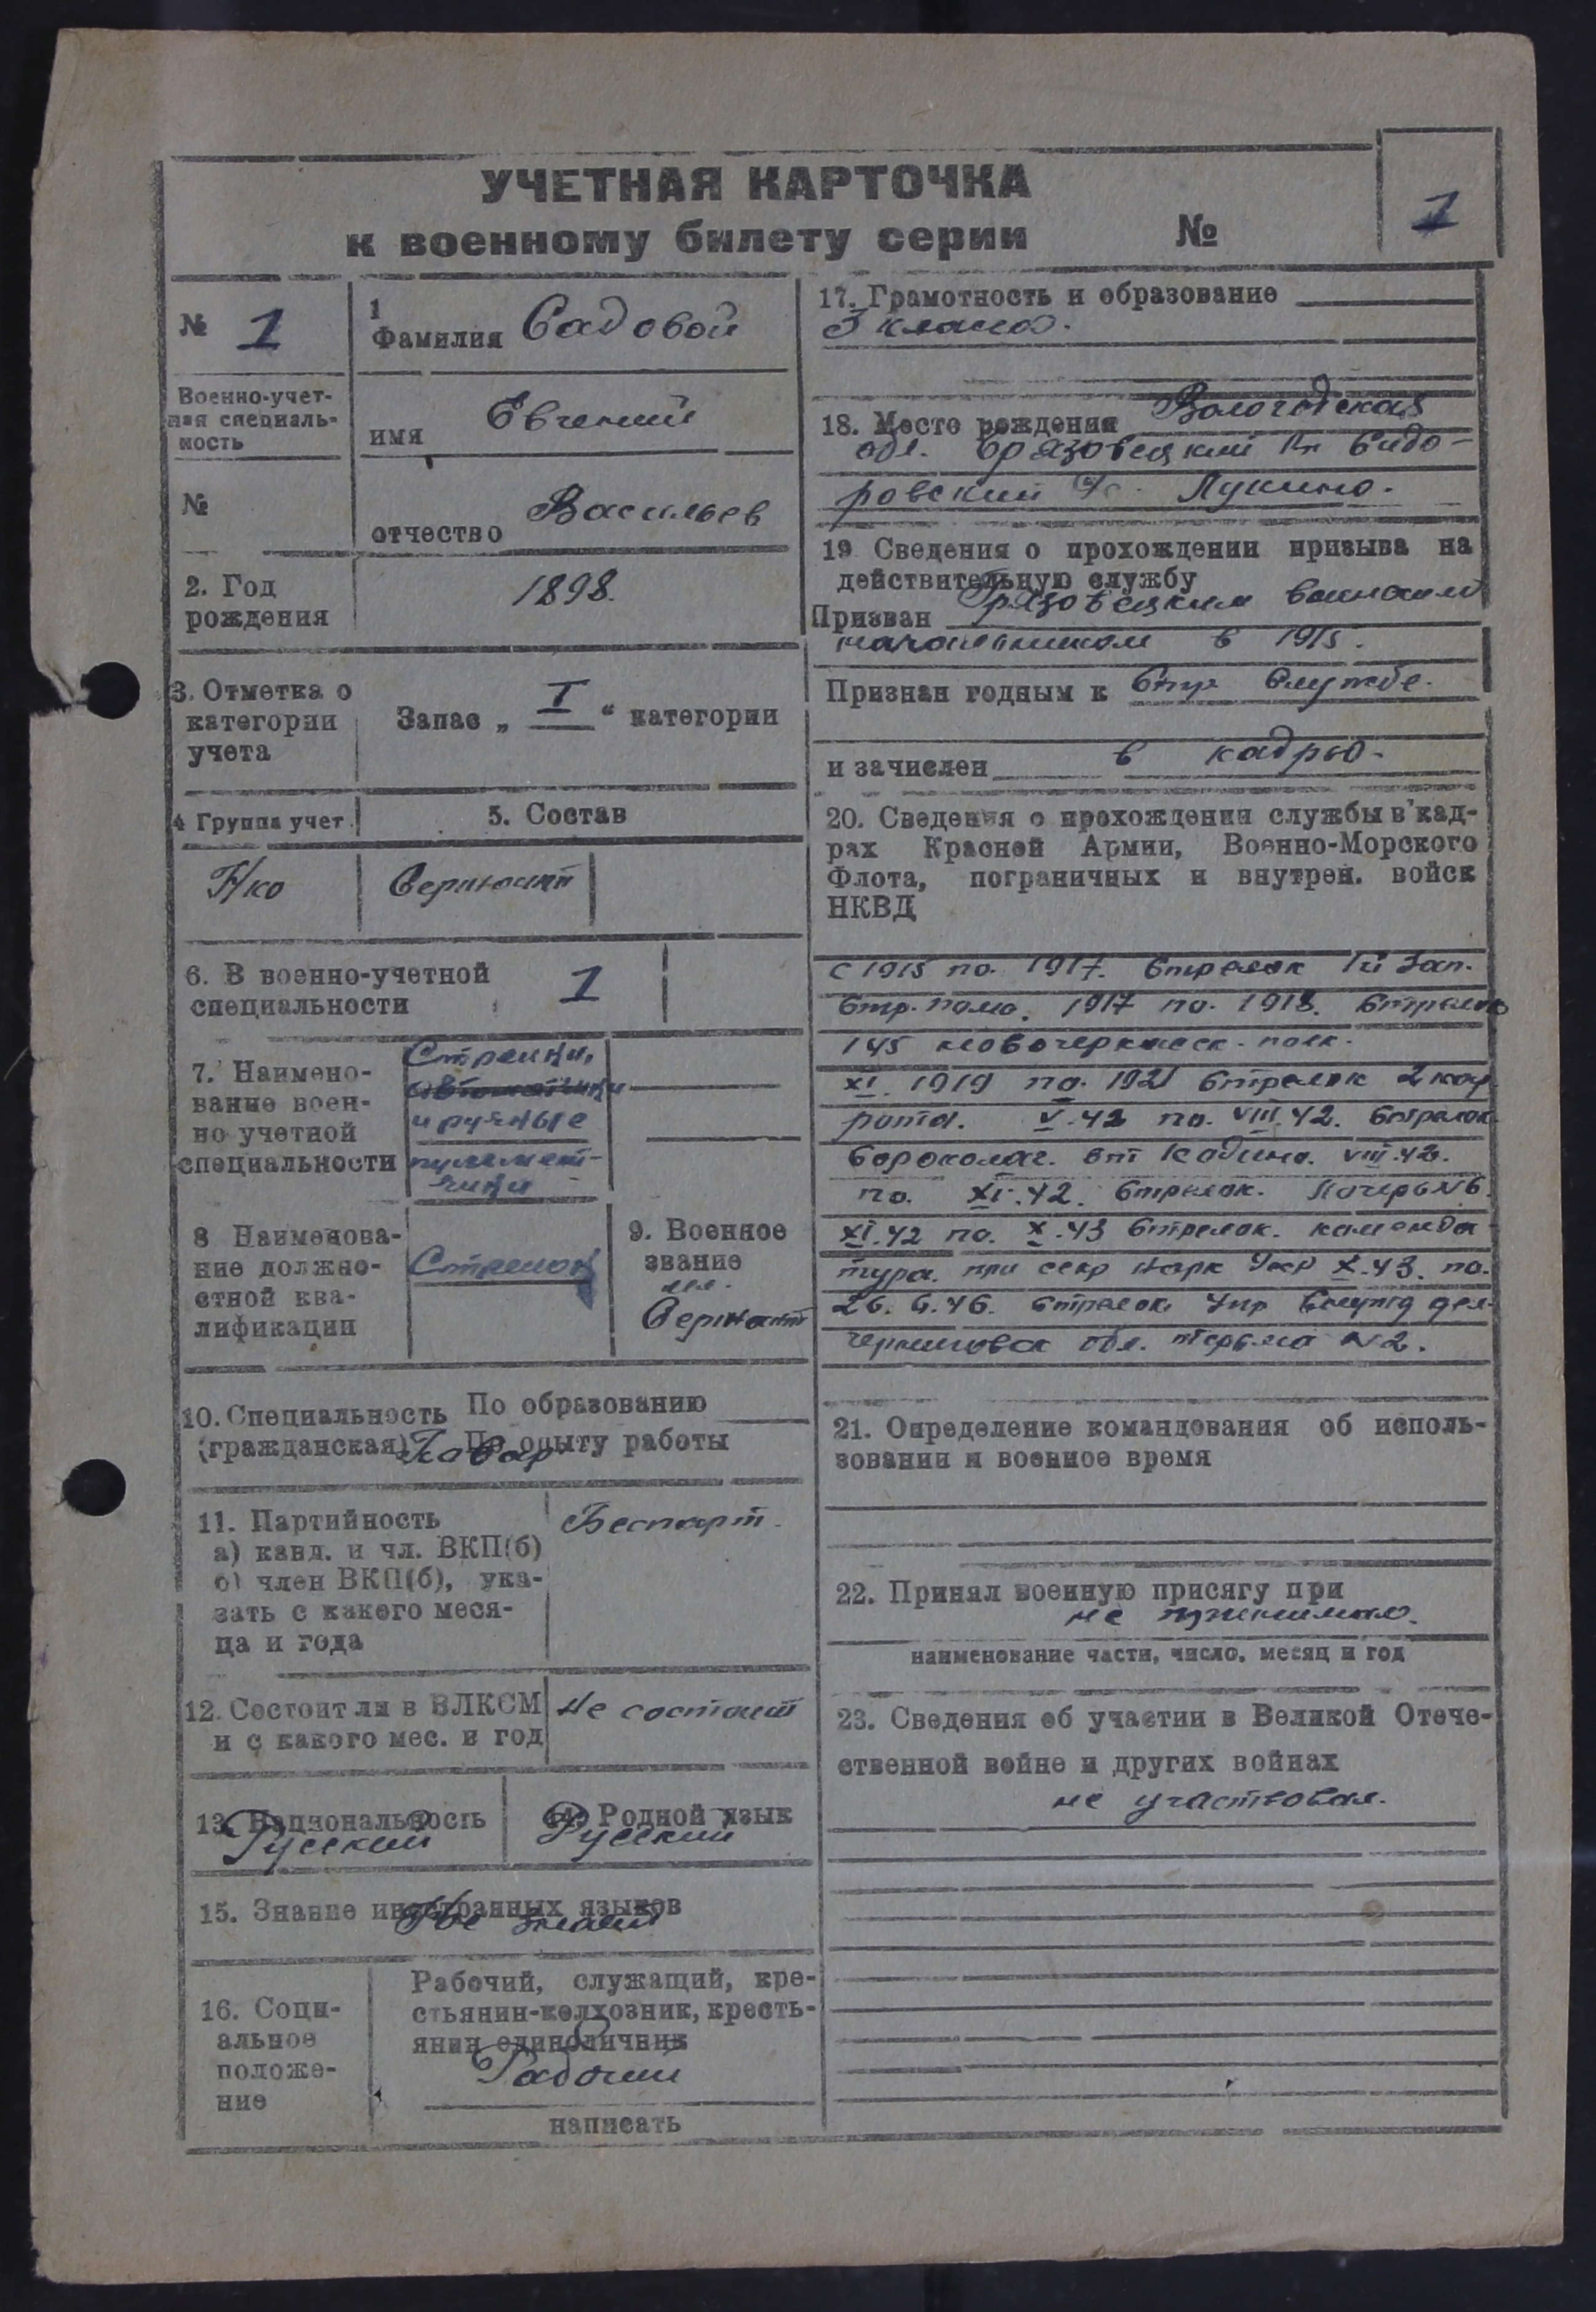 УЧЕТНАЯ КАРТОЧКА
к военному билету серии №
1
№ 1
1
Фамилия Садовой
Военно-учет-
ная специаль-
ность
имя Евгений
№
отчество Васильев
2. Год
рождения
1898.
3. Отметка о
категории
учета
Запас „ I “ категории
4 Группа учет.
5. Состав
Н/ко
Сержант
6. В военно-учетной
специальности
1
7. Наимено-
вание воен-
но учетной
специальности
Стрелки,
автоматчики
и ручные
пулемет-
чики
8 Наименова-
ние должно-
стной ква-
лификации
Стрелок
9. Военное
звание
мл.
Сержант
10. Специальность
(гражданская)
По образованию
По опыту работы
Повар
11. Партийность
а) канд. и чл. ВКП(б)
б) член ВКП(б), ука-
зать с какого меся-
ца и года
Беспарт.
12. Состоит ли в ВЛКСМ
и с какого мес. и год
Не состоит
13. Национальность
Русский
14. Родной язык
Русский
15. Знание иностранных языков
Не знает
16. Соци-
альное
положе-
ние
Рабочий, служащий, кре-
стьянин-колхозник, кресть-
янин единоличник
Рабочий
написать
17. Грамотность и образование
3 класса.
18. Место рождения Вологодская
обл. Грязовецкий Рн Сидо-
ровский Лукино.
19 Сведения о прохождении призыва на
действительную службу
Призван Грязовецким воинским
начальником в 1915.
Признан годным к Стр Службе.
и зачислен в кадры.
20. Сведения о прохождении службы в кад-
рах Красной Армии, Военно-Морского
Флота, пограничных и внутрен. войск
НКВД
с 1915 по. 1917. Стрелок Зап.
Стр. полк. 1917 по. 1918. Стрелок
145 новочеркасск. полк.
XI. 1919 по. 1921 Стрелок 2 кар
рота. V.42 по. VIII.42. Стрелок
VIII.42.
по. XI.42. Стрелок.
XI.42 по. X.43 Стрелок. коменда-
тура. при X.43. по.
26. 6. 46. Стрелок Упр
обл. тюрьма №2.
21. Определение командования об исполь-
зовании и военное время
22. Принял военную присягу при
не принимал.
наименование части, число, месяц и год
23. Сведения об участии в Великой Отече-
ственной войне и других войнах
не участвовал.